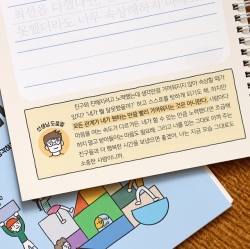 최선을 다했지만
못했더라도 너무 자책하지
선생님 도움말
친구와 친해지려고 노력했는데 생각만큼 가까워지지 않아 속상할 때가
있지? '내가 뭘 잘못했을까?' 하고 스스로를 탓하게 되기도 해. 하지만
모든 관계가 내가 원하는 만큼 빨리 가까워지는 것은 아니란다. 사람마다
마음을 여는 속도가 다르거든. 네가 할 수 있는 만큼 노력했다면 조급해
하지 말고 받아들이는 마음도 필요해. 그리고 너를 있는 그대로 아껴 주는
친구들과 더 행복한 시간을 보냈으면 좋겠어. 너는 지금 모습 그대로도
소중한 사람이니까.